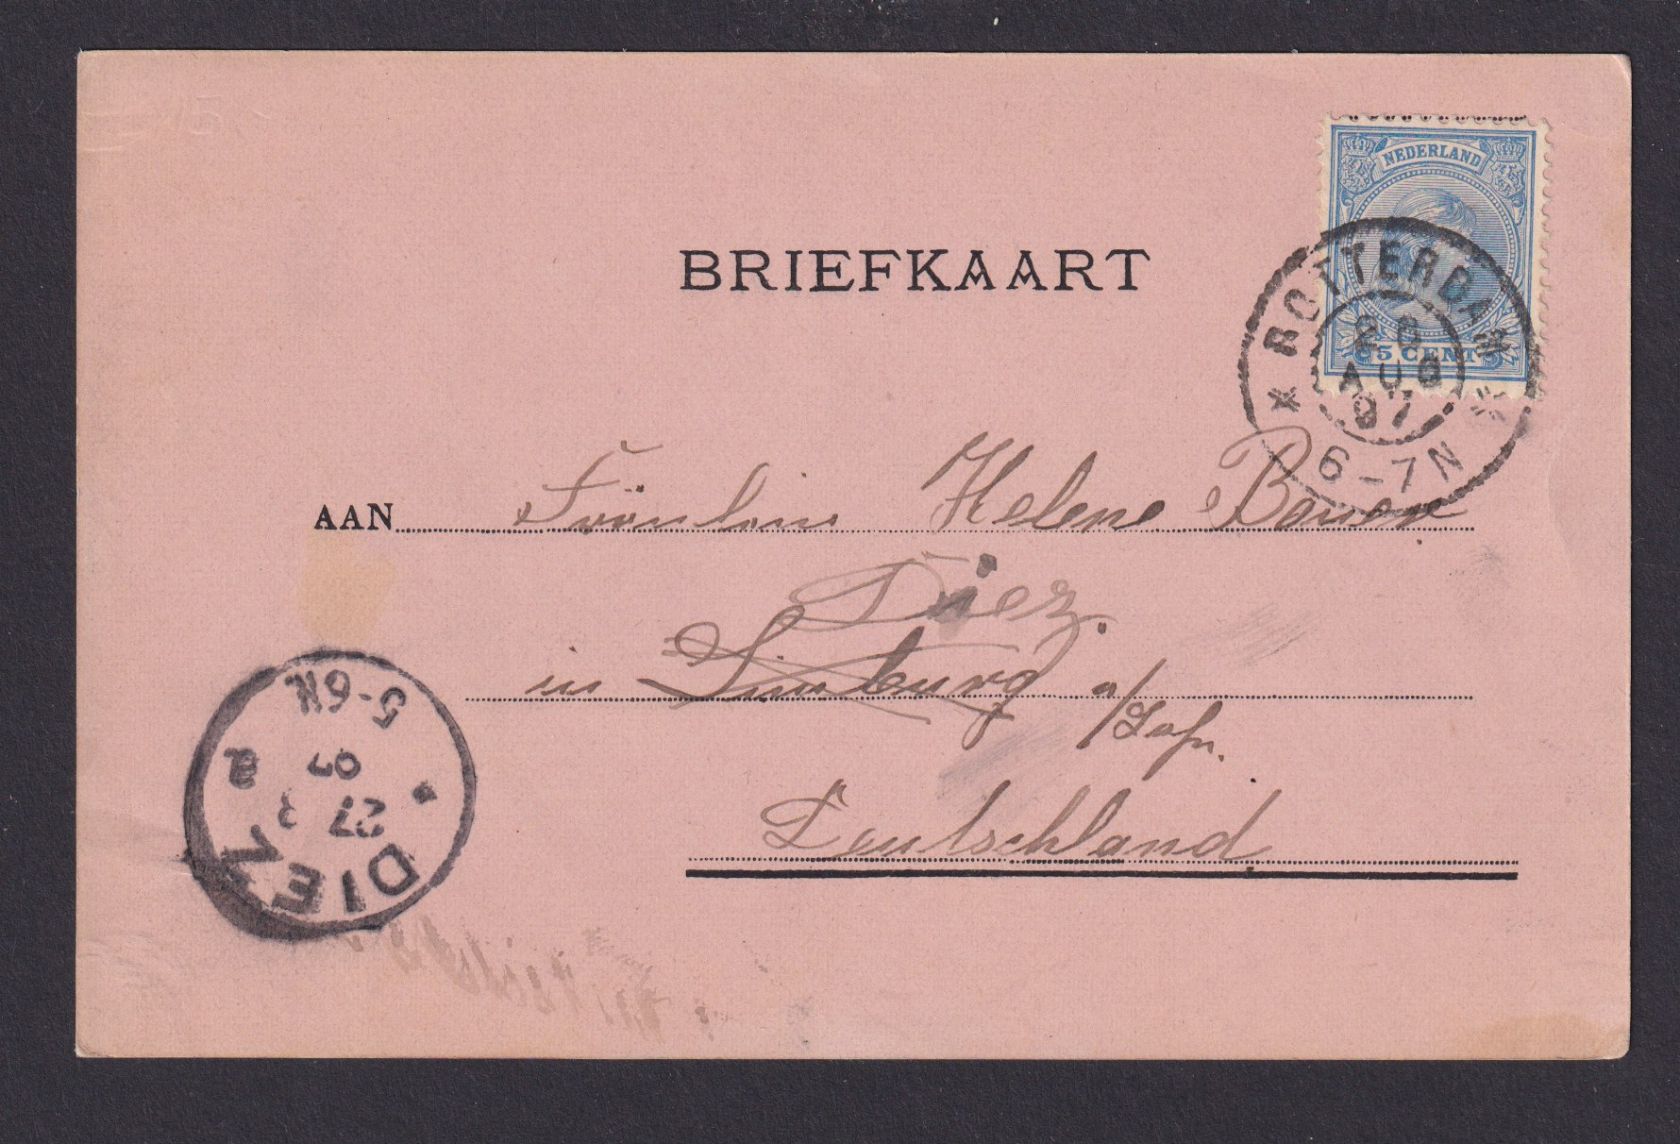 NEDERLAND
5 CENT
ROTTERDAM
26
AUG
97
6-7N
BRIEFKAART
AAN Fräulein Helene Bauer
Diez
in Limburg a/Lahn.
Deutschland
DIEZ
27 8
97
5-6N
a